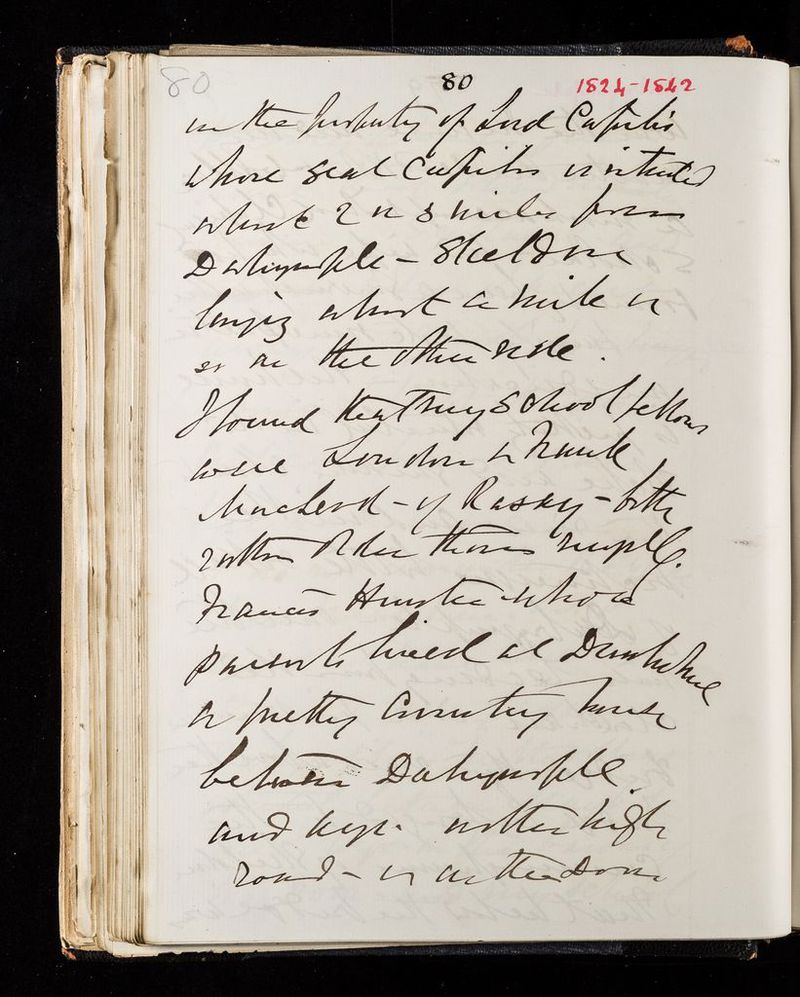 80
80
1824-1842
on the property of Lord Cassilis
whose seat Cassilis is situated
about 2 or 3 miles from
Dalrymple - Skeldon
lying about a mile or
so on the other side.
I found that my School fellows
were London & Frank
MacLeod - of Rasay - both
rather older than myself.
Francis Hunter whose
parents lived at
a pretty Country house
between Dalrymple
and Ayr. on the high
road - or on the Doon